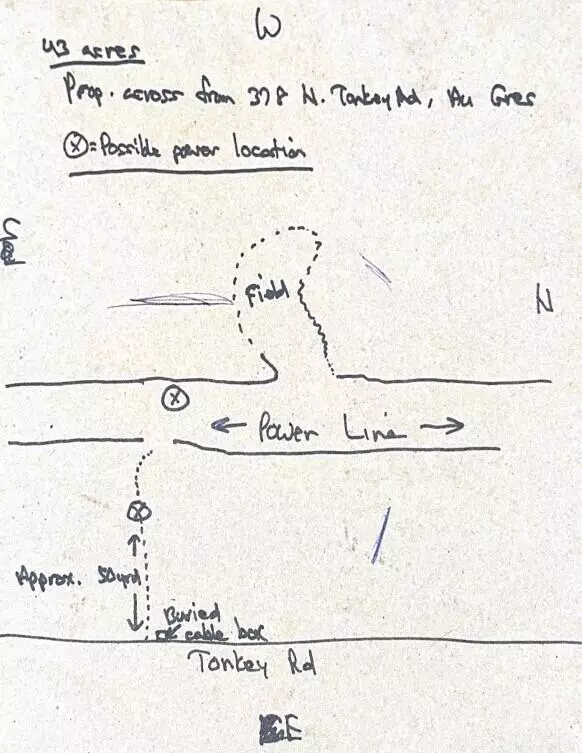 W
43 acres
Prop. across from 378 N. Tonkey Rd, Au Gres
ⓧ = Possible power location
Field
N
ⓧ
← Power Line →
ⓧ
Approx. 50 yrd
Buried
cable box
Tonkey Rd
E